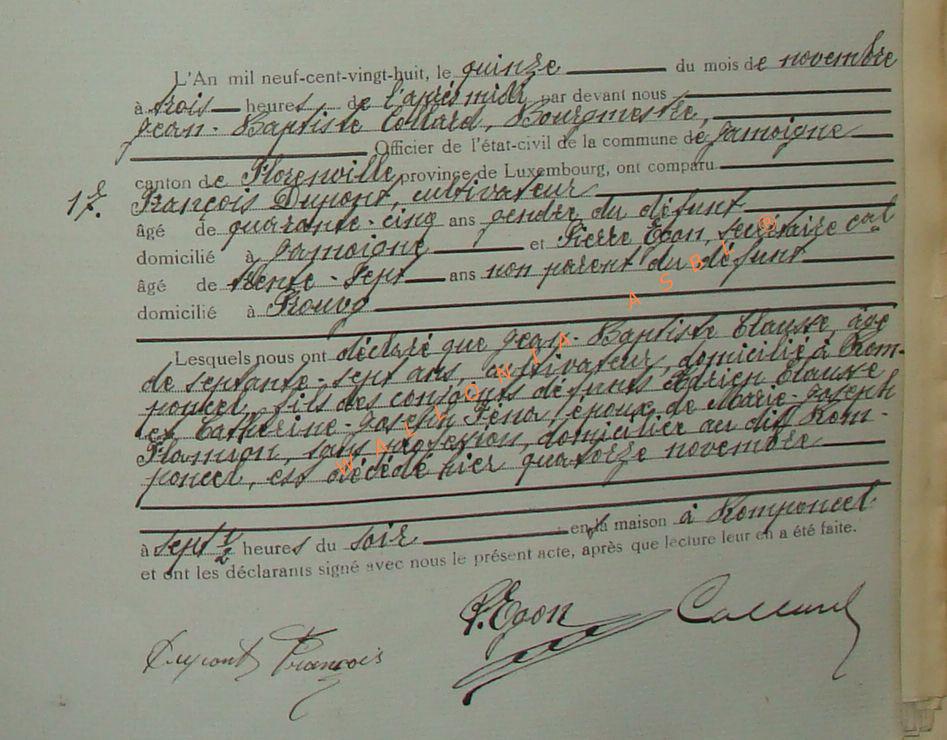 L'An mil neuf-cent-vingt-huit, le quinze du mois de novembre
à trois heures de l'après midi par devant nous
Jean-Baptiste Collard, Bourgmestre,
Officier de l'état-civil de la commune de Jamoigne
canton de Florenville province de Luxembourg, ont comparu
17. François Dupont, cultivateur
âgé de quarante-cinq ans gendre du défunt
domicilié à Jamoigne et Pierre Egon, secrétaire cal
âgé de trente-sept ans non parent du défunt
domicilié à Prouvy
Lesquels nous ont déclaré que Jean-Baptiste Clausse, âgé
de septante-sept ans, cultivateur, domicilié à Rom-
poncel, fils des conjoints défunts Adrien Clausse
et Catherine-Joseph époux de Marie-Joseph
sans profession, domicilier au dit Rom-
poncel, est décédé hier quatorze novembre
à sept 1/2 heures du soir en sa maison à Romponcel
et ont les déclarants signé avec nous le présent acte, après que lecture leur en a été faite.
P. Egon Collard
Dupont François
WALLONIA ASBL ®